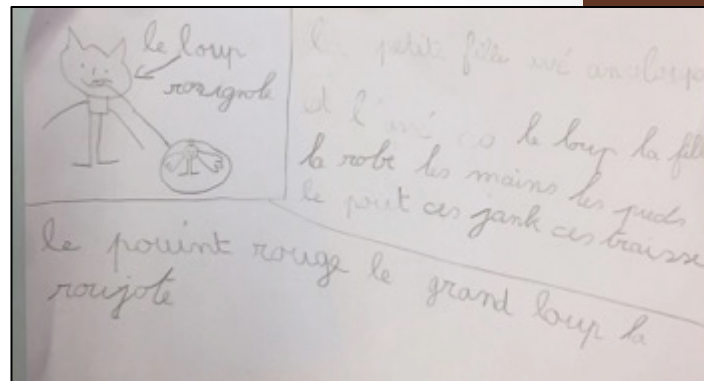 le loup
rozignole
petite fille
le loup la
la robe les mains les pieds
le pout ces jank ces braisse
le pouint rouge le grand loup la
roujote